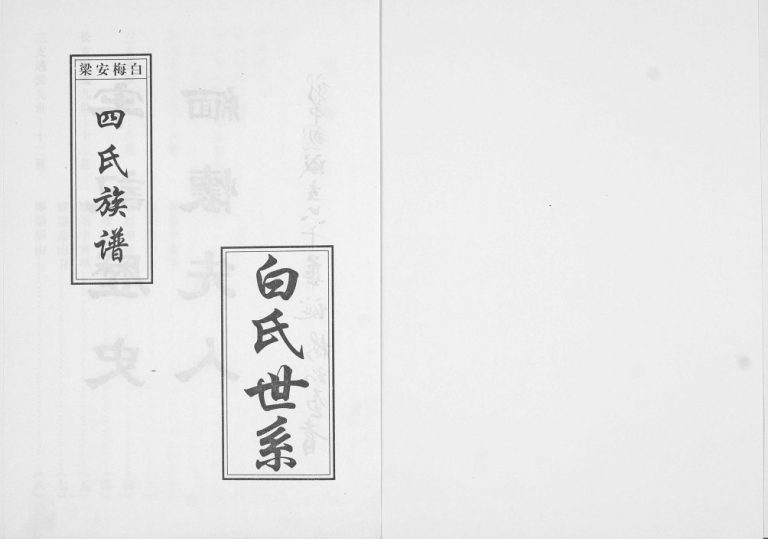 白梅安梁
四氏族谱
白氏世系